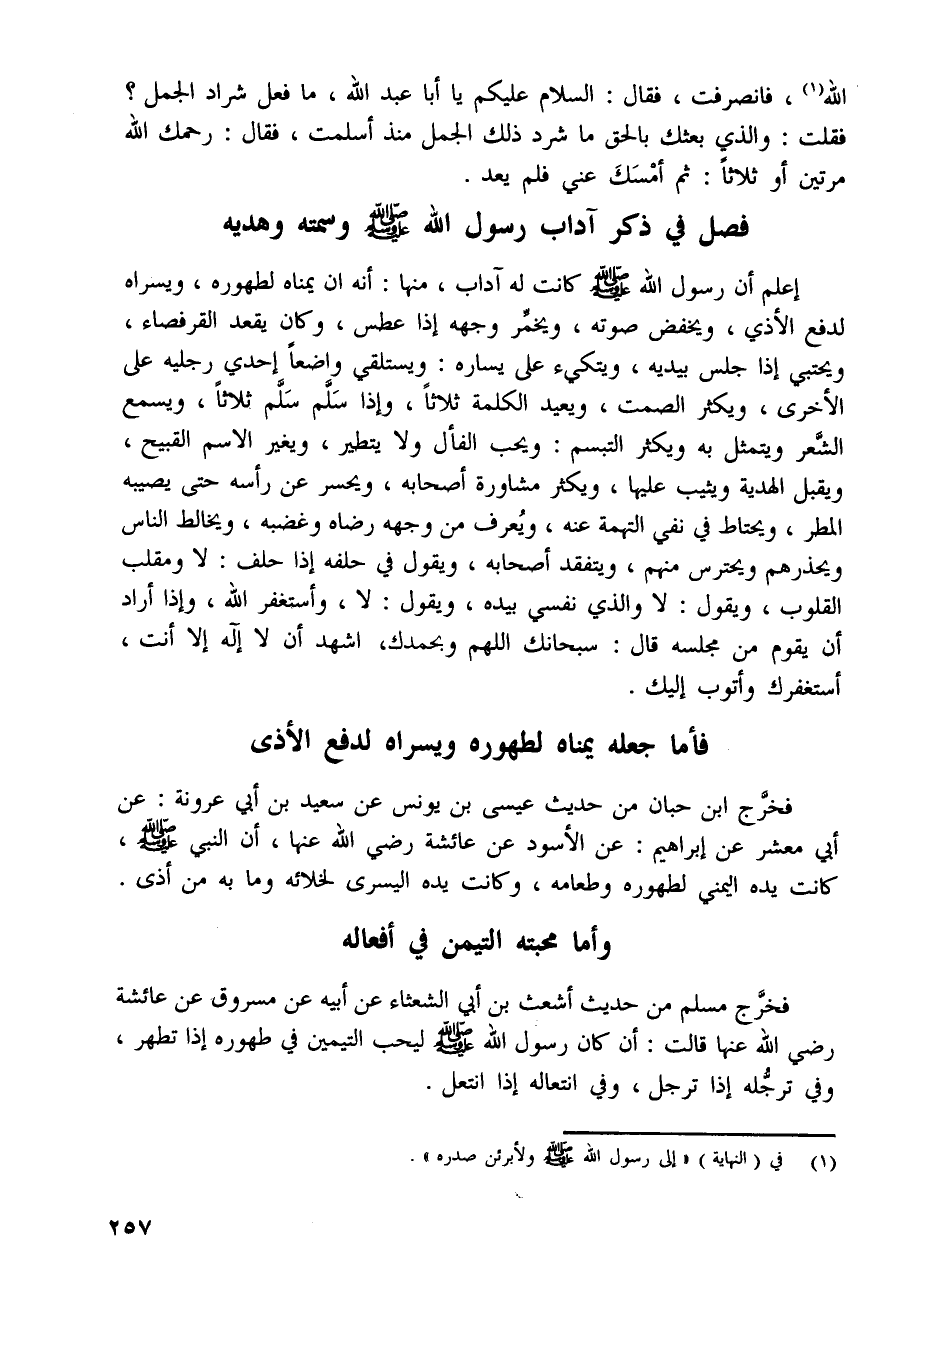 الله(١) ، فانصرفت ، فقال : السلام عليكم يا أبا عبد الله ، ما فعل شراد الجمل ؟
فقلت : والذي بعثك بالحق ما شرد ذلك الجمل منذ أسلمت ، فقال : رحمك الله
مرتين أو ثلاثاً : ثم أمْسَكَ عني فلم يعد .
فصل في ذكر آداب رسول الله ﷺ وسمته وهديه
إعلم أن رسول الله ﷺ كانت له آداب ، منها : أنه ان يمناه لطهوره ، ويسراه
لدفع الأذي ، ويخفض صوته ، ويخمِّر وجهه إذا عطس ، وكان يقعد القرفصاء ،
ويحتبي إذا جلس بيديه ، ويتكيء على يساره : ويستلقي واضعاً إحدي رجليه على
الأخرى ، ويكثر الصمت ، ويعيد الكلمة ثلاثاً ، وإذا سَلَّم سَلَّم ثلاثاً ، ويسمع
الشَّعر ويتمثل به ويكثر التبسم : ويحب الفأل ولا يتطير ، ويغير الاسم القبيح ،
ويقبل الهدية ويثيب عليها ، ويكثر مشاورة أصحابه ، ويحسر عن رأسه حتى يصيبه
المطر ، ويحتاط في نفي التهمة عنه ، ويُعرف من وجهه رضاه وغضبه ، ويخالط الناس
ويحذرهم ويحترس منهم ، ويتفقد أصحابه ، ويقول في حلفه إذا حلف : لا ومقلب
القلوب ، ويقول : لا والذي نفسي بيده ، ويقول : لا ، وأستغفر الله ، وإذا أراد
أن يقوم من مجلسه قال : سبحانك اللهم وبحمدك، اشهد أن لا إلَه إلا أنت ،
أستغفرك وأتوب إليك .
فأما جعله يمناه لطهوره ويسراه لدفع الأذى
فخرَّج ابن حبان من حديث عيسى بن يونس عن سعيد بن أبي عرونة : عن
أبي معشر عن إبراهيم : عن الأسود عن عائشة رضي الله عنها ، أن النبي ﷺ ،
كانت يده اليمني لطهوره وطعامه ، وكانت يده اليسرى لخلائه وما به من أذى .
وأما محبته التيمن في أفعاله
فخرَّج مسلم من حديث أشعث بن أبي الشعثاء عن أبيه عن مسروق عن عائشة
رضي الله عنها قالت : أن كان رسول الله ﷺ ليحب التيمين في طهوره إذا تطهر ،
وفي ترجُّله إذا ترجل ، وفي انتعاله إذا انتعل .
(١) في ( النهاية ) « إلى رسول الله ﷺ ولأبرئن صدره » .
٢٥٧